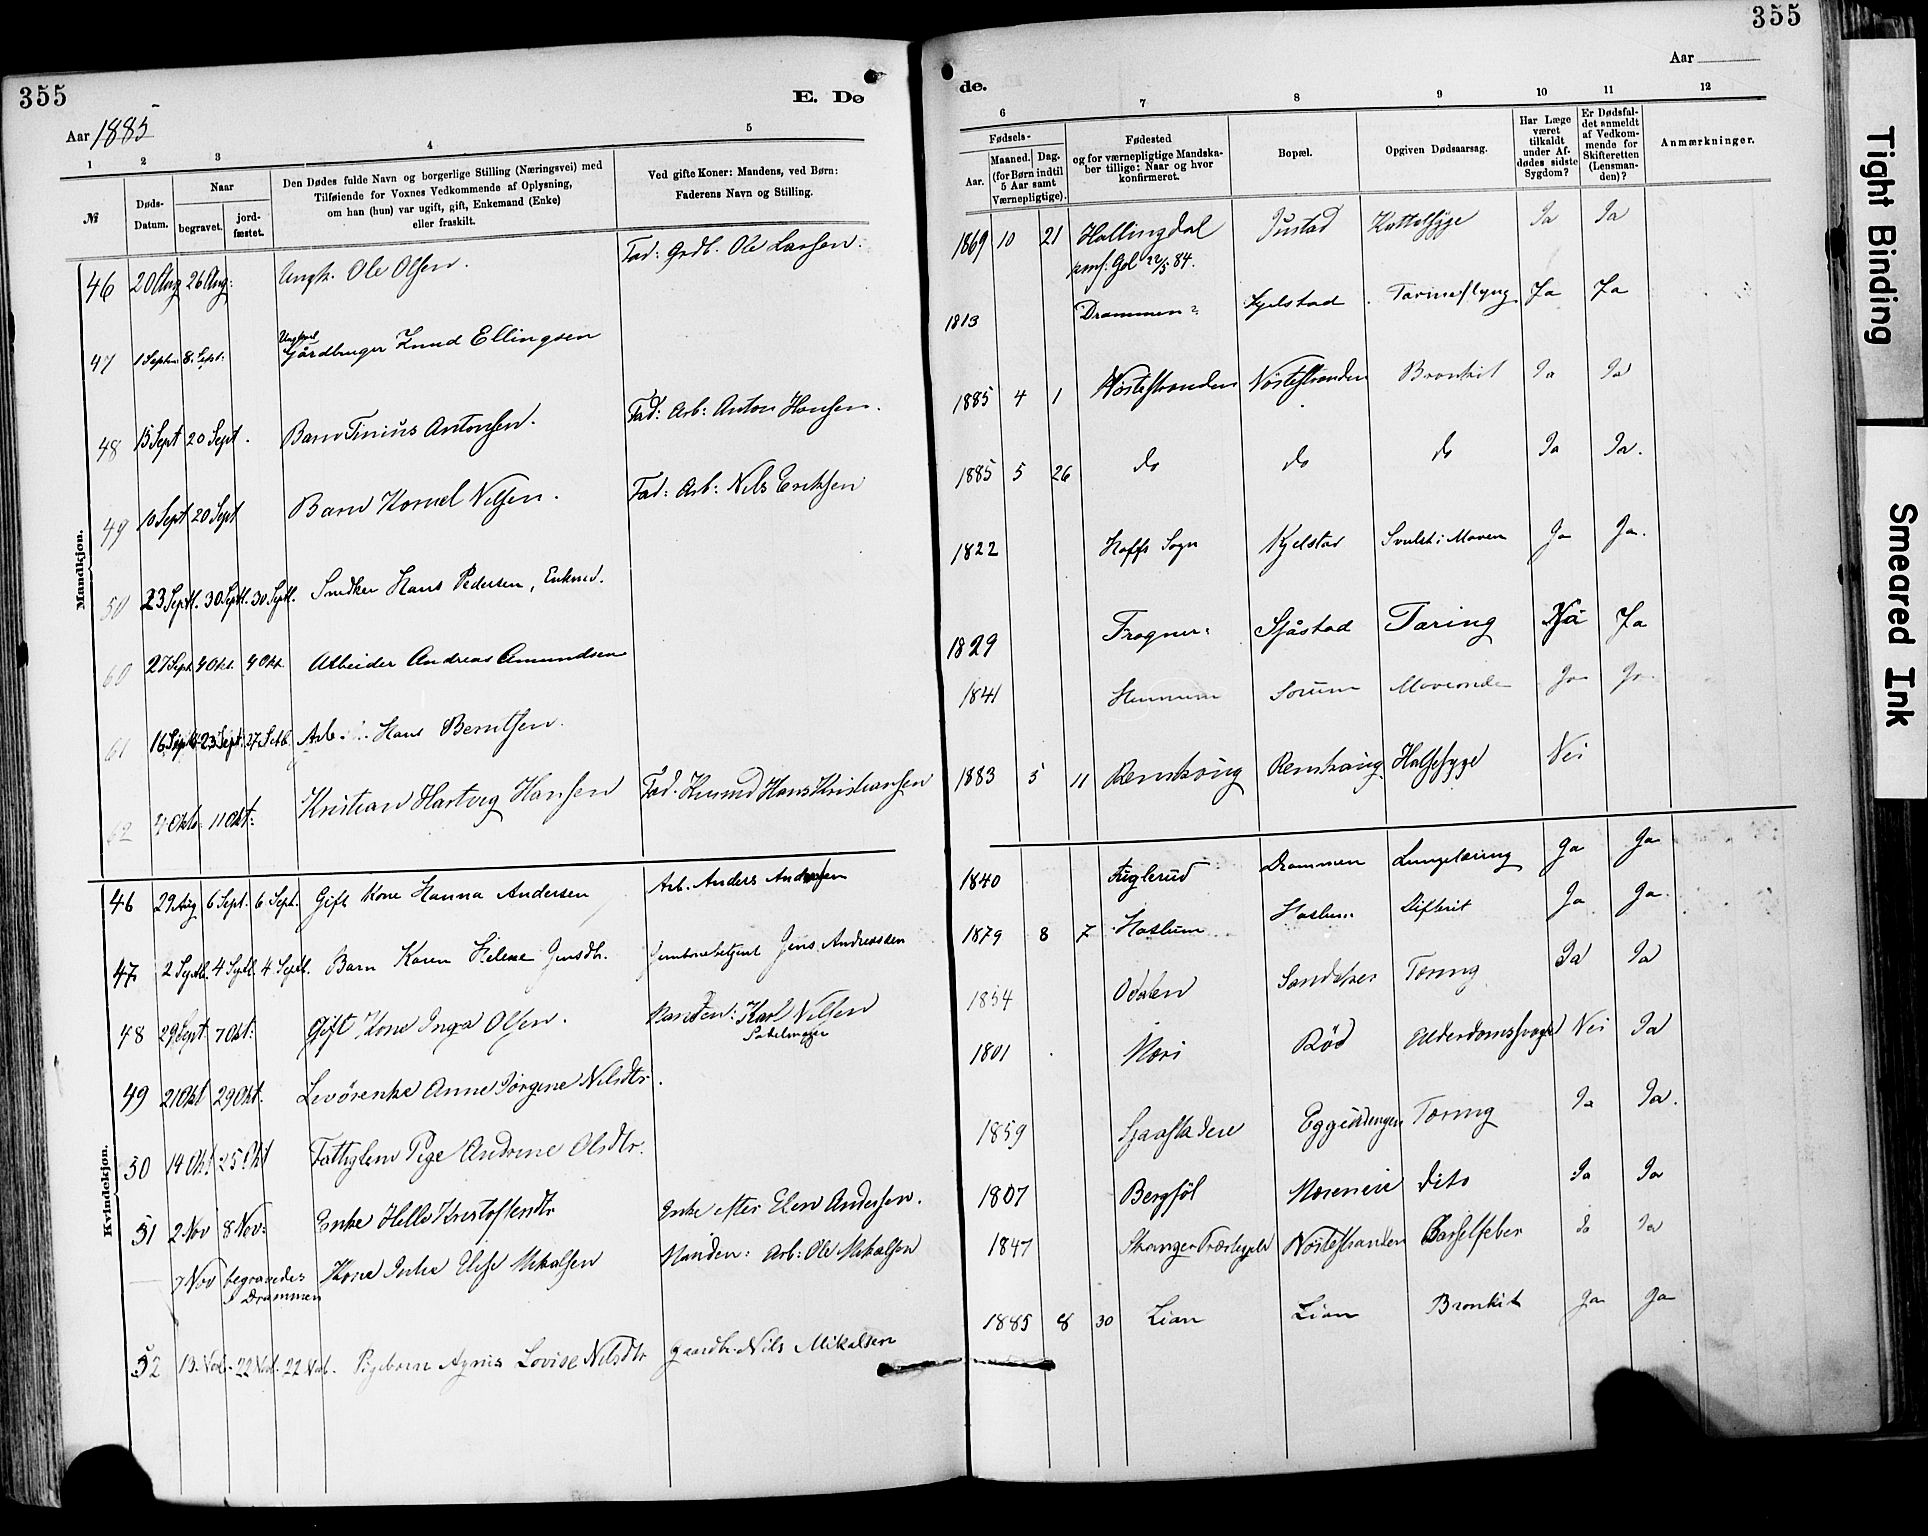 355
E. Dø
Aar 1885
1 2 3 4 5
№
Døds-Datum.
Naar
begravet.
jord-fæstet.
Den Dødes fulde Navn og borgerlige Stilling (Næringsvei) med
Tilføiende for Voxnes Vedkommende af Oplysning,
om han (hun) var ugift, gift, Enkemand (Enke)
eller fraskilt.
Ved gifte Koner: Mandens, ved Børn:
Faderens Navn og Stilling.
Mandkjøn.
46 20 Aug 26 Aug: Ungk. Ole Olsen. Fad: Grdb. Ole Larsen.
47 1 Septbr 8 Sept: Ungkarl Gårdbruger Knud Ellingsen
48 15 Sept 20 Sept. Barn Tinius Antonsen. Fad: Arb: Anton Hansen.
49 10 Sept 20 Sept Barn Kornel Nilsen. Fad: Arb: Nils Eriksen
50 23 Septb. 30 Septb. 30 Septb. Snedker Hans Pedersen, Enkemd.
60 27 Sept 4 Okt. 4 Okt. Arbeider Andreas Amundsen
61 16 Septb 23 Sept. 27 Septb Arb. Hans Berntsen.
62 4 Okto: 11 Okt: Kristian Hartvig Hansen Fad. Husmd Hans Kristiansen
Kvindekjøn.
46 29 Aug 6 Sept. 6 Sept. Gift Kone Hanna Andersen Arb. Anders Andersen
47 2 Septb. 4 Septb. 4 Septb. Barn Karen Helene Jensdtr. Jernbanebetjent Jens Andreassen
48 29 Sept 7 Okt: Gift Kone Inga Olsen. Manden: Karl Nilsen
Sadelmager
49 21 Okt 29 Okt. Levørenke Anne Jørgine Nilsdtr.
50 14 Okt 25 Okt Fattiglem Pige Andrine Olsdtr.
51 2 Nov 8 Nov: Enke Helle Kristofersdtr Enke efter Elen Andersen.
— 7 Nov begravedes i Drammen Kone Inke Else Mikalsen Manden: Arb: Ole Mikalsen
52 13. Novb. 22 Novb. 22 Novb. Pigebarn Agnes Lovise Nilsdtr Gaardbr. Nils Mikalsen
355
de.
Aar
6 7 8 9 10 11 12
Fødsels-
Aar.
Maaned.
Dag.
(for Børn indtil
5 Aar samt
Værnepligtige).
Fødested
og for værnepligtige Mandska-
ber tillige: Naar og hvor
konfirmeret.
Bopæl.
Opgiven Dødsaarsag.
Har Læge
været
tilkaldt
under Af-
dødes sidste
Sygdom?
Er Dødsfal-
det anmeldt
af Vedkom-
mende for
Skifteretten
(Lensman-
den)?
Anmærkninger.
1869 10 21 Hallingdal Justad Ja Ja
konf. Gol 22/5 84.
1813 Drammen Kjelstad Ja Ja
1885 4 1 Nøstestranden Nøstestranden Bronkit Ja Ja
1885 5 26 do do do Ja Ja.
1822 Hoffs Sogn Kjelstad Svulst i Maven Ja Ja.
1829 Frogner Sjåstad Tæring Ja Ja
1841 Hennum Sørum Maveonde Ja Ja
1883 5 11 Renskoug Renskoug Halsesyge Nei
1840 Fuglerud Drammen Lungetæring Ja Ja
1879 8 7 Haslum Haslum Difterit Ja Ja.
1854 Odalen Sandaker Tæring Ja Ja
1801 Meri Rød Alderdomssvaghed Nei Ja
1859 Sjaastadeie Eggeengen Tæring Ja Ja.
1807 Bergsøl Mereneie dito Ja Ja
1847 Stranger Præstegjeld Nøstestranden Barselfeber do Ja
1885 8 30 Lian Lian Bronkit Ja Ja
Tight Binding
Smeared Ink